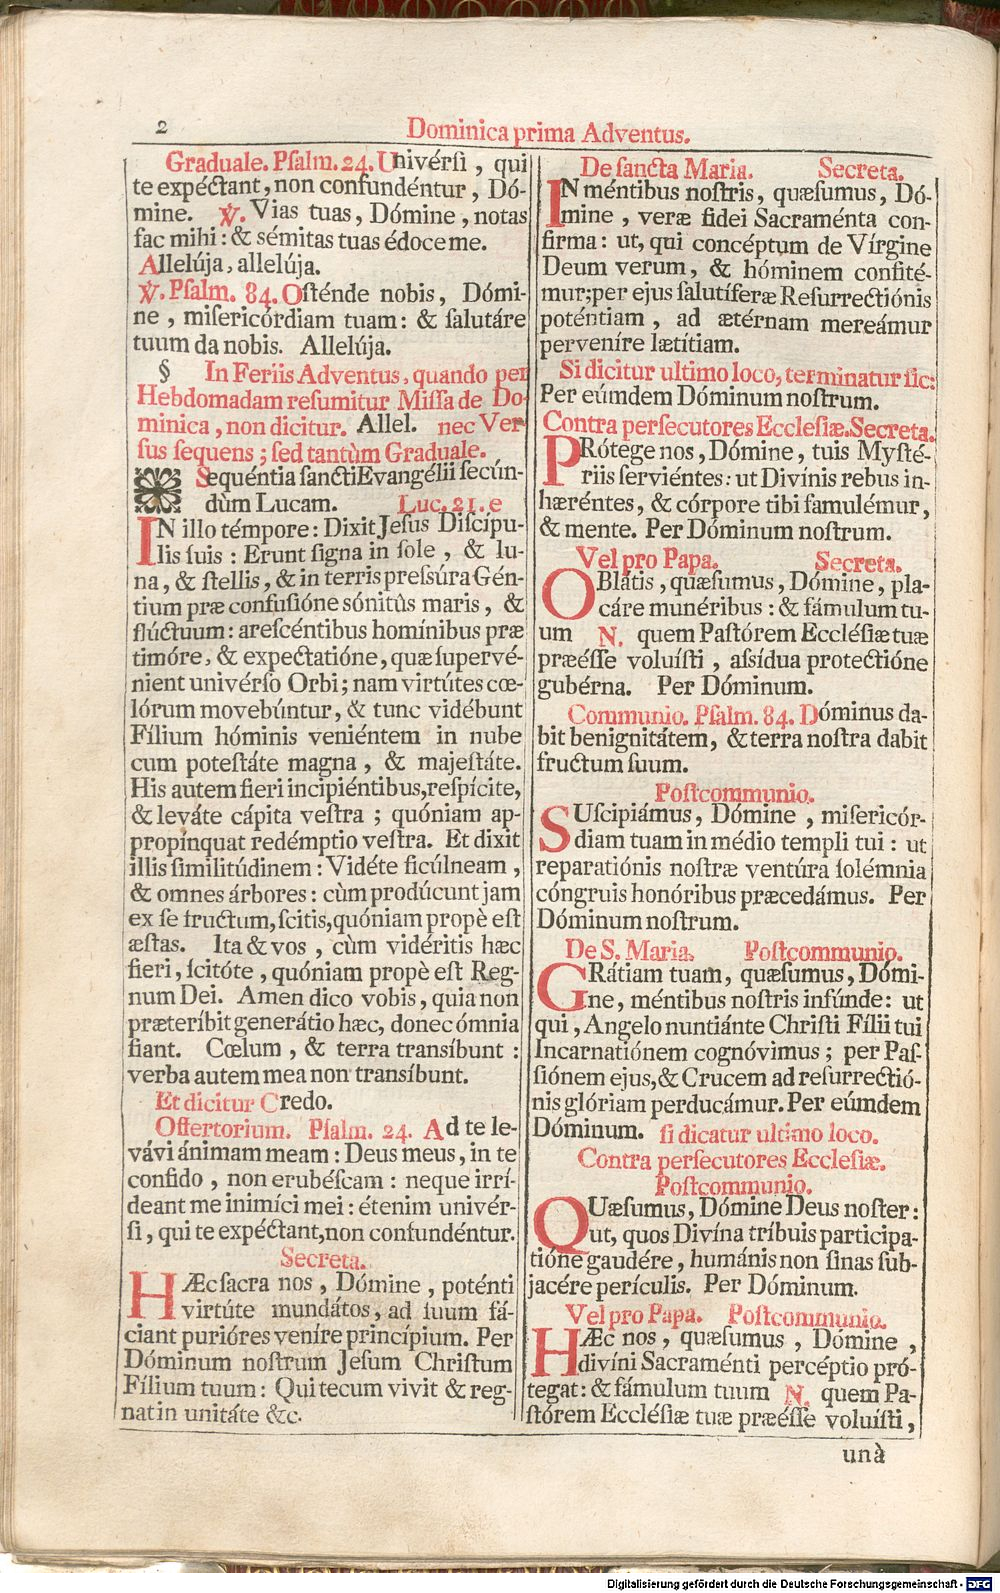 2
Dominica prima Adventus.
Graduale. Psalm. 24. Univérsi, qui
te expéctant, non confundéntur, Dó-
mine. ℣. Vias tuas, Dómine, notas
fac mihi: & sémitas tuas édoce me.
Allelúja, allelúja.
℣. Psalm. 84. Osténde nobis, Dómi-
ne, misericórdiam tuam: & salutáre
tuum da nobis. Allelúja.
§ In Feriis Adventus, quando per
Hebdomadam resumitur Missa de Do-
minica, non dicitur. Allel. nec Ver-
sus sequens; sed tantùm Graduale.
Sequéntia sancti Evangélii secún-
dùm Lucam. Luc. 21. e
IN illo témpore: Dixit Jesus Discípu-
lis suis: Erunt signa in sole, & lu-
na, & stellis, & in terris pressúra Gén-
tium præ confusióne sónitùs maris, &
flúctuum: arescéntibus homínibus præ
timóre, & expectatióne, quæ supervé-
nient univérso Orbi; nam virtútes cœ-
lórum movebúntur, & tunc vidébunt
Fílium hóminis veniéntem in nube
cum potestáte magna, & majestáte.
His autem fieri incipiéntibus, respícite,
& leváte cápita vestra; quóniam ap-
propinquat redémptio vestra. Et dixit
illis similitúdinem: Vidéte ficúlneam,
& omnes árbores: cùm prodúcunt jam
ex se fructum, scitis, quóniam propè est
æstas. Ita & vos, cùm vidéritis hæc
fieri, scitóte, quóniam propè est Reg-
num Dei. Amen dico vobis, quia non
præteríbit generátio hæc, donec ómnia
fiant. Cœlum, & terra transíbunt:
verba autem mea non transíbunt.
Et dicitur Credo.
Offertorium. Psalm. 24. Ad te le-
vávi ánimam meam: Deus meus, in te
confido, non erubéscam: neque irrí-
deant me inimíci mei: étenim univér-
si, qui te expéctant, non confundéntur.
Secreta.
HÆc sacra nos, Dómine, poténti
virtúte mundátos, ad suum fá-
ciant purióres veníre princípium. Per
Dóminum nostrum Jesum Christum
Fílium tuum: Qui tecum vivit & reg-
nat in unitáte &c.
De sancta Maria. Secreta.
IN méntibus nostris, quæsumus, Dó-
mine, veræ fidei Sacraménta con-
firma: ut, qui concéptum de Vírgine
Deum verum, & hóminem confité-
mur; per ejus salutíferæ Resurrectiónis
poténtiam, ad ætérnam mereámur
perveníre lætítiam.
Si dicitur ultimo loco, terminatur sic:
Per eúmdem Dóminum nostrum.
Contra persecutores Ecclesiæ. Secreta.
PRótege nos, Dómine, tuis Mysté-
riis serviéntes: ut Divínis rebus in-
hæréntes, & córpore tibi famulémur,
& mente. Per Dóminum nostrum.
Vel pro Papa. Secreta.
OBlátis, quæsumus, Dómine, pla-
cáre munéribus: & fámulum tu-
um N. quem Pastórem Ecclésiæ tuæ
præésse voluísti, assídua protectióne
gubérna. Per Dóminum.
Communio. Psalm. 84. Dóminus da-
bit benignitátem, & terra nostra dabit
fructum suum.
Postcommunio.
SUscipiámus, Dómine, misericór-
diam tuam in médio templi tui: ut
reparatiónis nostræ ventúra solémnia
cóngruis honóribus præcedámus. Per
Dóminum nostrum.
De S. Maria. Postcommunio.
GRátiam tuam, quæsumus, Dómi-
ne, méntibus nostris infúnde: ut
qui, Angelo nuntiánte Christi Fílii tui
Incarnatiónem cognóvimus; per Pas-
siónem ejus, & Crucem ad resurrectió-
nis glóriam perducámur. Per eúmdem
Dóminum. si dicatur ultimo loco.
Contra persecutores Ecclesiæ.
Postcommunio.
QUæsumus, Dómine Deus noster:
ut, quos Divína tríbuis participa-
tióne gaudére, humánis non sinas sub-
jacére perículis. Per Dóminum.
Vel pro Papa. Postcommunio.
HÆc nos, quæsumus, Dómine,
divíni Sacraménti percéptio pró-
tegat: & fámulum tuum N. quem Pa-
stórem Ecclésiæ tuæ præésse voluísti,
unà
Digitalisierung gefördert durch die Deutsche Forschungsgemeinschaft - DFG